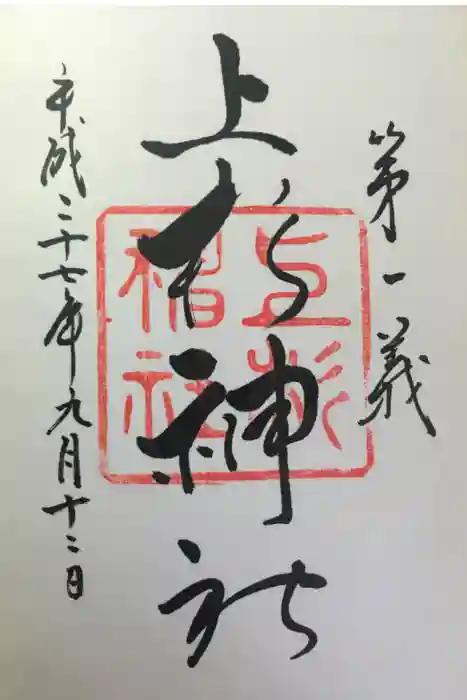 第一義
上杉神社
上杉神社
平成二十七年九月十二日